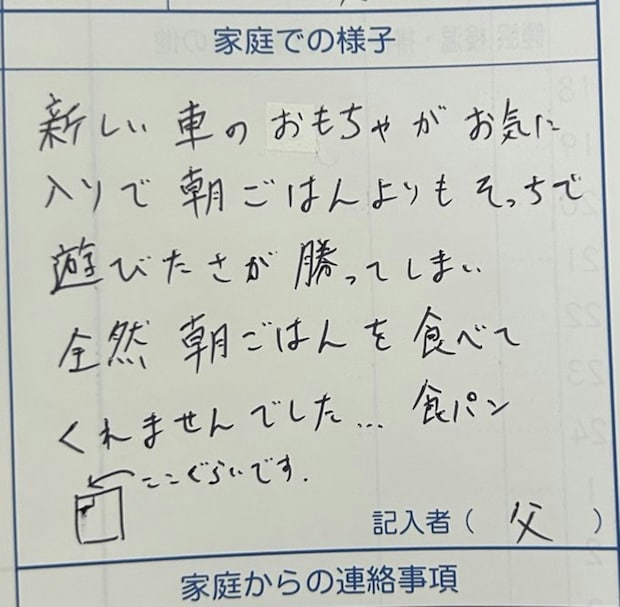 家庭での様子
新しい 車の おもちゃが お気に
入りで 朝ごはんよりも そっちで
遊びたさが 勝ってしまい
全然 朝ごはんを 食べて
くれませんでした... 食パン
←ここぐらいです.
記入者( 父 )
家庭からの連絡事項